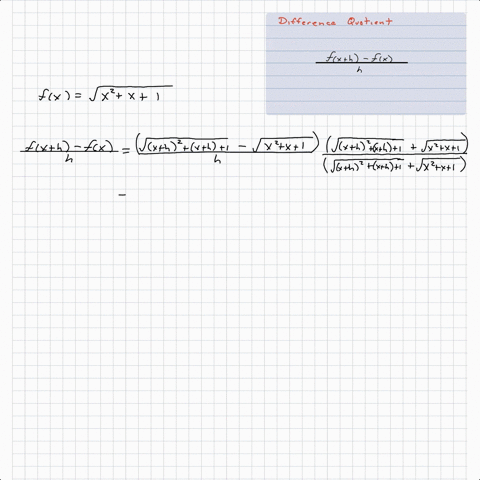 Difference Quotient
f(x+h) - f(x)
h
f(x) = √(x² + x + 1)
f(x+h) - f(x) / h = (√((x+h)² + (x+h) + 1) - √(x² + x + 1)) / h · (√((x+h)² + (x+h) + 1) + √(x² + x + 1)) / (√((x+h)² + (x+h) + 1) + √(x² + x + 1))
=